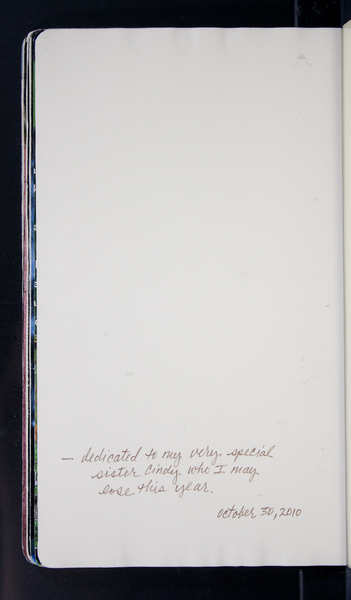 — dedicated to my very special
sister Cindy who I may
lose this year.
october 30, 2010